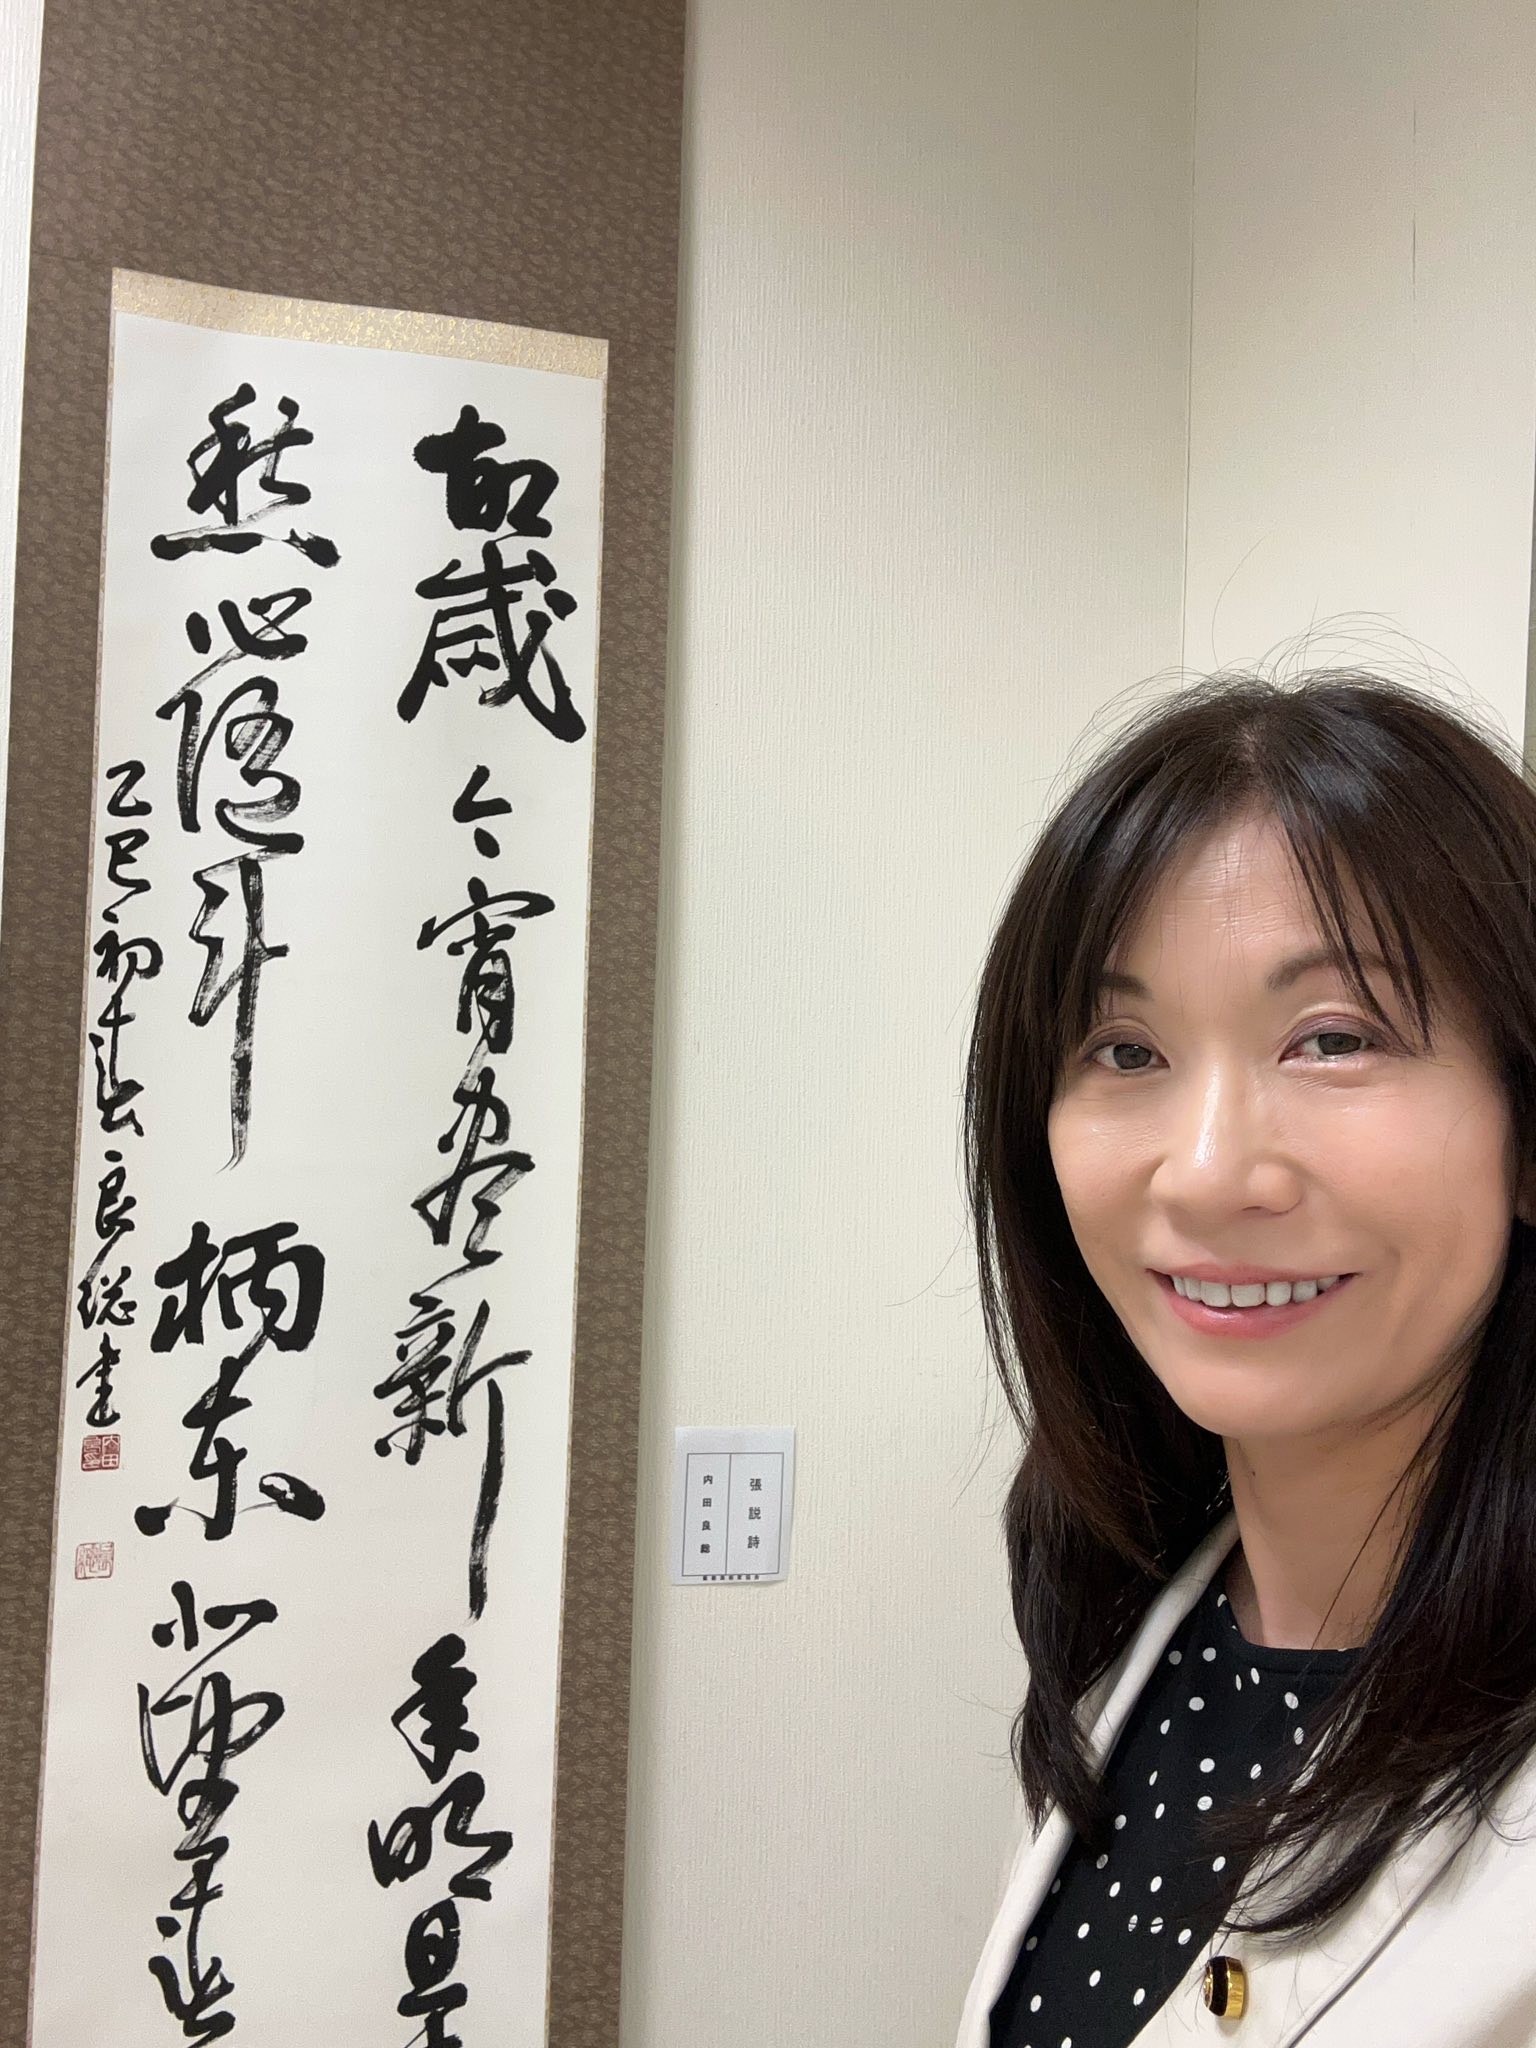 故歳今宵尽新年明旦
愁心随斗柄東北望春
乙巳初春良総書
張説詩
内田良総